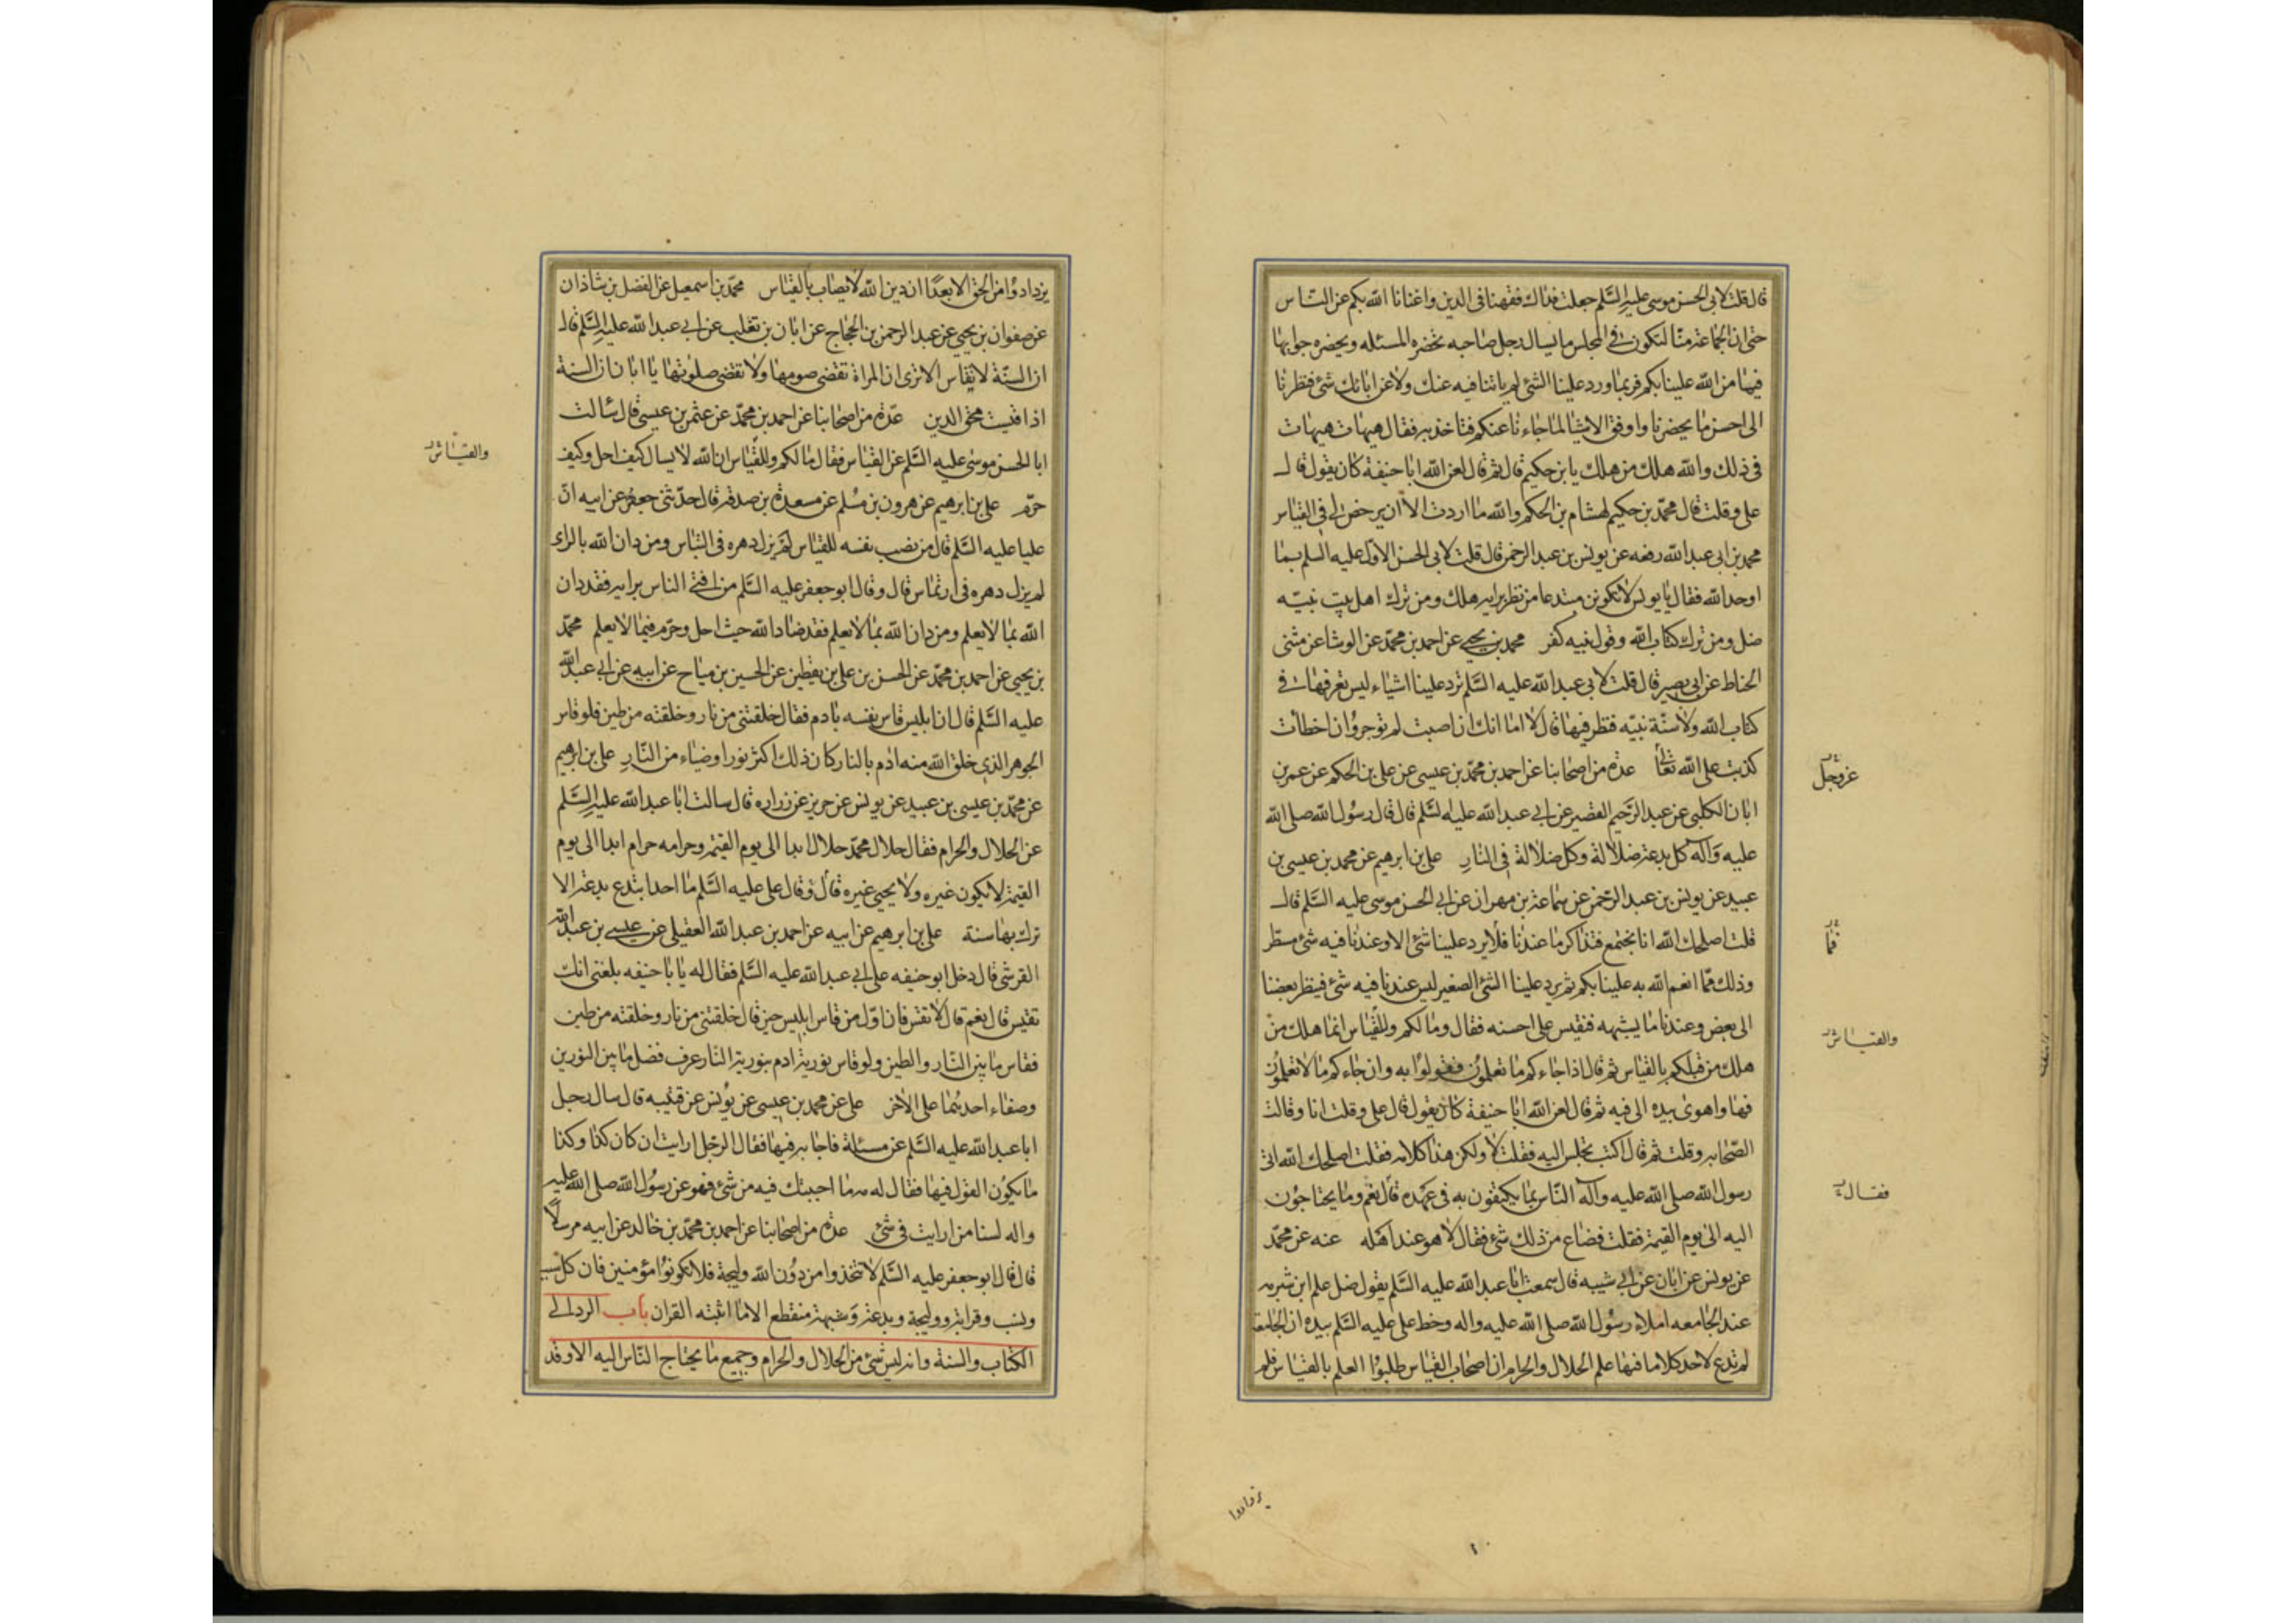 قال قلت لابى الحسن موسى عليه السلم جعلت فداك فقهنا فى الدين واغنانا الله بكم عن الناس
حتى ان الجماعة منا لتكون فى المجلس ما يسال رجل صاحبه تحضره المسئله ويحضره جوابها
فيما من الله علينا بكم فربما ورد علينا الشئ لم ياتنا فيه عنك ولا عن ابائك شئ فنظرنا
الى احسن ما يحضرنا واوفق الاشيا لما جاءنا عنكم فناخذ به فقال هيهات هيهات
فى ذلك والله هلك من هلك يا بن حكيم قال ثم قال لعن الله ابا حنيفة كان يقول قال
على وقلت قال محمد بن حكيم لهشام بن الحكم والله ما اردت الا ان يرخص لى فى القياس
محمد بن ابى عبد الله رفعه عن يونس بن عبد الرحمن قال قلت لابى الحسن الاول عليه السلم بما
اوحد الله فقال يا يونس لا تكونن مبتدعا من نظر برايه هلك ومن ترك اهل بيت نبيه
ضل ومن ترك كتاب الله وقول نبيه كفر محمد بن يحيى عن احمد بن محمد عن الوشا عن مثنى
الحناط عن ابى بصير قال قلت لابى عبد الله عليه السلم ترد علينا اشياء ليس نعرفها فى
كتاب الله ولا سنة نبيه فننظر فيها قال لا اما انك ان اصبت لم توجر وان اخطأت
كذبت على الله تعالى عدة من اصحابنا عن احمد بن محمد بن عيسى عن على بن الحكم عن عمر بن
عز وجل
ابان الكلبى عن عبد الرحيم القصير عن ابى عبد الله عليه السلم قال قال رسول الله صلى الله
عليه وآله كل بدعة ضلالة وكل ضلالة فى النار على بن ابرهيم عن محمد بن عيسى بن
عبيد عن يونس بن عبد الرحمن عن سماعة بن مهران عن ابى الحسن موسى عليه السلم قال
قلت اصلحك الله انا نجتمع فنتذاكر ما عندنا فلا يرد علينا شئ الا وعندنا فيه شئ مسطر
فما
وذلك مما انعم الله به علينا بكم ثم يرد علينا الشئ الصغير ليس عندنا فيه شئ فينظر بعضنا
الى بعض وعندنا ما يشبهه فنقيس على احسنه فقال وما لكم وللقياس انما هلك من
والقياس
هلك من قبلكم بالقياس ثم قال اذا جاءكم ما تعلمون فقولوا به وان جاءكم ما لا تعلمون
فها واهوى بيده الى فيه ثم قال لعن الله ابا حنيفة كان يقول قال على وقلت انا وقالت
الصحابه وقلت ثم قال اكنت تجلس اليه فقلت لا ولكن هذا كلامه فقلت اصلحك الله اتى
رسول الله صلى الله عليه وآله الناس بما يكتفون به فى عهده قال نعم وما يحتاجون
فقال
اليه الى يوم القيمة فقلت فضاع من ذلك شئ فقال لا هو عند اهله عنه عن محمد
عن يونس عن ابان عن ابى شيبه قال سمعت ابا عبد الله عليه السلم يقول ضل علم ابن شبرمه
عند الجامعه املاء رسول الله صلى الله عليه واله وخط على عليه السلم بيده ان الجامعة
لم تدع لاحد كلاما فيها علم الحلال والحرام ان اصحاب القياس طلبوا العلم بالقياس فلم
يزدادوا
يزدادوا من الحق الا بعدًا ان دين الله لا يصاب بالقياس محمد بن اسمعيل عن الفضل بن شاذان
عن صفوان بن يحيى عن عبد الرحمن بن الحجاج عن ابان بن تغلب عن ابى عبد الله عليه السلم قال
ان السنة لا يقاس الا ترى ان المراة تقضى صومها ولا تقضى صلوتها يا ابان ان السنة
اذا قيست محق الدين عدة من اصحابنا عن احمد بن محمد عن عثمن بن عيسى قال سالت
ابا الحسن موسى عليه السلم عن القياس فقال ما لكم وللقياس ان الله لا يسال كيف احل وكيف
والقياس
حرم على بن ابرهيم عن هرون بن مسلم عن مسعدة بن صدقه قال حدثنى جعفر عن ابيه ان
عليا عليه السلم قال من نصب نفسه للقياس لم يزل دهره فى التباس ومن دان الله بالراى
لم يزل دهره فى ارتماس قال وقال ابو جعفر عليه السلم من افتى الناس برايه فقد دان
الله بما لا يعلم ومن دان الله بما لا يعلم فقد ضاد الله حيث احل وحرم فيما لا يعلم محمد
بن يحيى عن احمد بن محمد عن الحسن بن على بن يقطين عن الحسين بن مياح عن ابيه عن ابى عبد الله
عليه السلم قال ان ابليس قاس نفسه بادم فقال خلقتنى من نار وخلقته من طين فلو قاس
الجوهر الذى خلق الله منه ادم بالنار كان ذلك اكثر نورا وضياء من النار على بن ابرهيم
عن محمد بن عيسى بن عبيد عن يونس عن حريز عن زراره قال سالت ابا عبد الله عليه السلم
عن الحلال والحرام فقال حلال محمد حلال ابدا الى يوم القيمة وحرامه حرام ابدا الى يوم
القيمة لا يكون غيره ولا يجيى غيره قال وقال على عليه السلم ما احد ابتدع بدعة الا
ترك بها سنة على بن ابرهيم عن ابيه عن احمد بن عبد الله العقيلى عن عيسى بن عبد الله
القرشى قال دخل ابو حنيفه على ابى عبد الله عليه السلم فقال له يا با حنيفه بلغنى انك
تقيس قال نعم قال لا تقس فان اول من قاس ابليس حين قال خلقتنى من نار وخلقته من طين
فقاس ما بين النار والطين ولو قاس نورية ادم بنورية النار عرف فضل ما بين النورين
وصفاء احدهما على الاخر على عن محمد بن عيسى عن يونس عن قتيبه قال سال رجل
ابا عبد الله عليه السلم عن مسئلة فاجابه فيها فقال الرجل ارايت ان كان كذا وكذا
ما يكون القول فيها فقال له مه ما اجبتك فيه من شئ فهو عن رسول الله صلى الله عليه
واله لسنا من ارايت فى شئ عدة من اصحابنا عن احمد بن محمد بن خالد عن ابيه مرسلًا
قال قال ابو جعفر عليه السلم لا تتخذوا من دون الله وليجة فلا تكونوا مؤمنين فان كل سبب
ونسب وقرابة ووليجة وبدعة وشبهة منقطع الا ما اثبته القران باب الرد الى
الكتاب والسنة وانه ليس شئ من الحلال والحرام وجميع ما يحتاج الناس اليه الا وقد